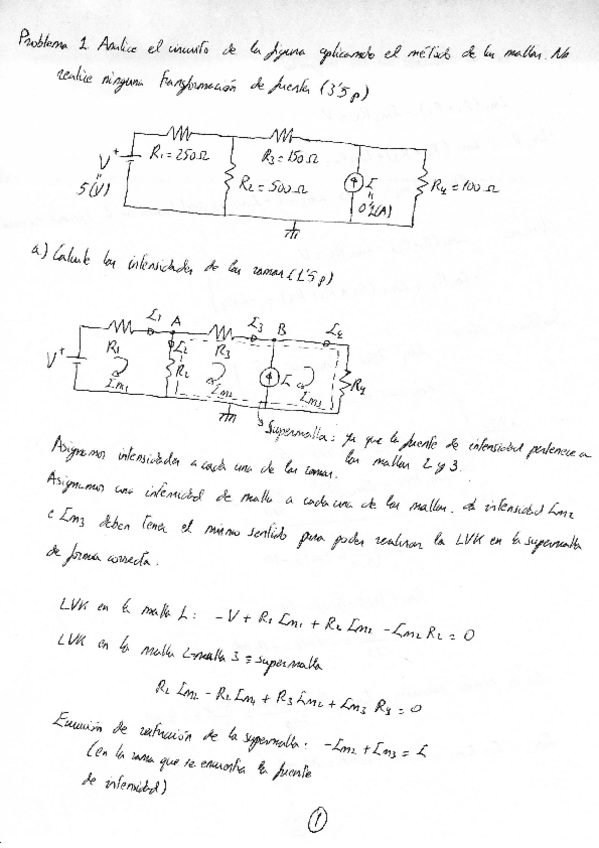 Problema 1. Analice el circuito de la figura aplicando el método de las mallas. No
realice ninguna transformación de fuente (3'5 p)
R1 = 250Ω
R3 = 150Ω
V
+
5(V)
R2 = 500Ω
I
0'2(A)
R4 = 100Ω
a) Calcule las intensidades de las ramas (1'5 p)
I1 A I3 B I4
V + R1 I2 R3
R2 I R4
Im1 Im2 Im3
Supermalla: ya que la fuente de intensidad pertenece a
las mallas 2 y 3.
Asignamos intensidades a cada una de las ramas.
Asignamos una intensidad de malla a cada una de las mallas. La intensidad Im2
e Im3 deben tener el mismo sentido para poder realizar la LVK en la supermalla
de forma correcta.
LVK en la malla 1: -V + R1 Im1 + R2 Im1 - Im2 R2 = 0
LVK en la malla 2-malla 3 ≡ supermalla
R2 Im2 - R2 Im1 + R3 Im2 + Im3 R4 = 0
Ecuación de restricción de la supermalla: -Im2 + Im3 = I
(en la rama que se encuentra la fuente
de intensidad)
1